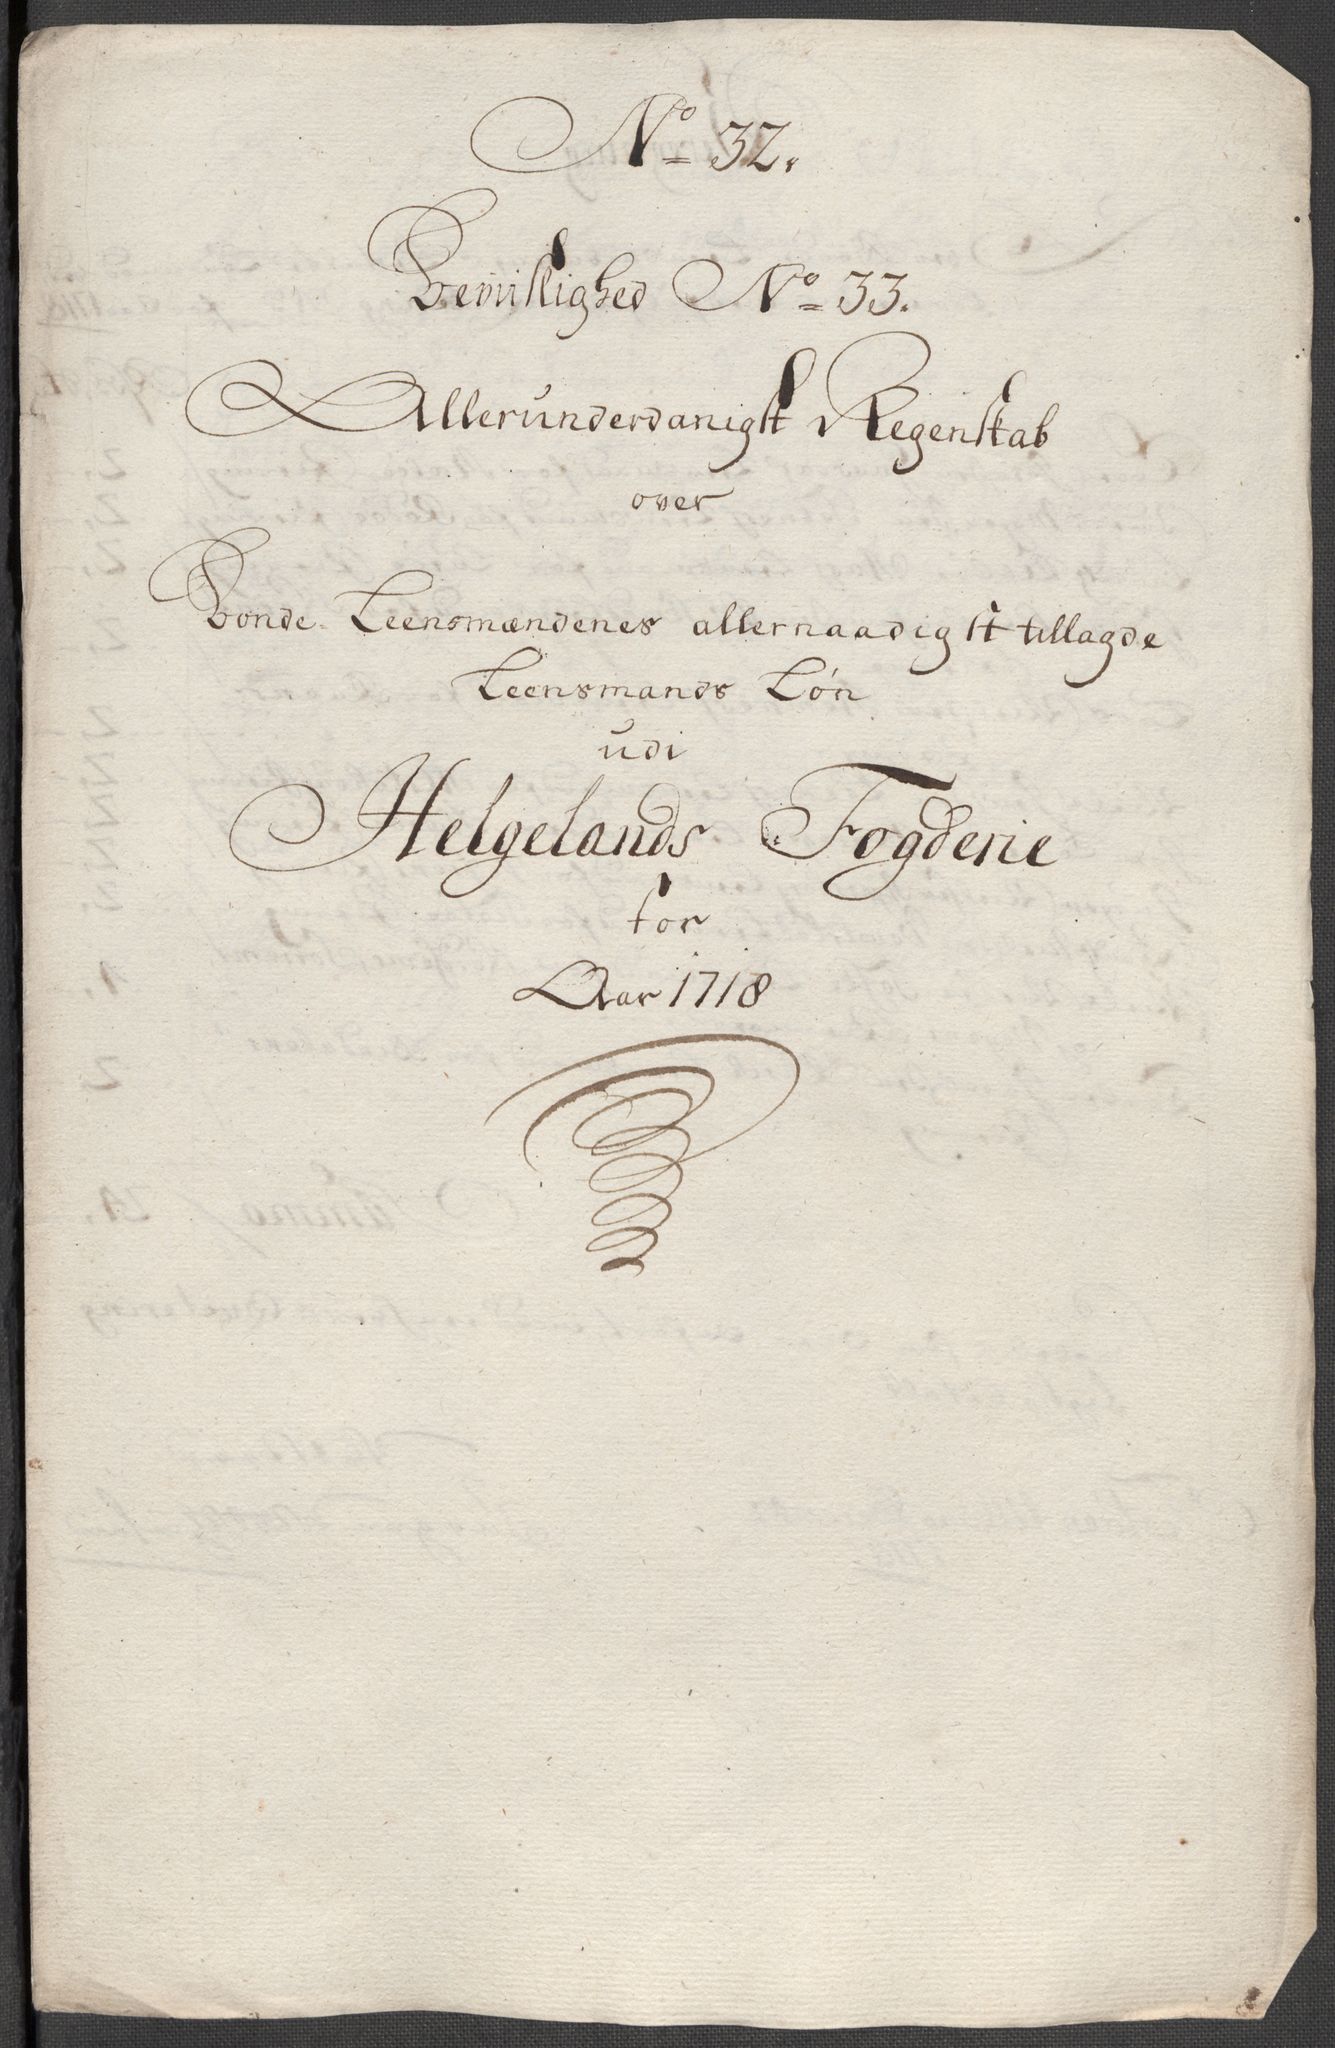 No 32.
Bevislighed No 33.
Allerunderdanigst Regenskab
over
Bonde Leensmændenes allernaadigst tillagde
Leensmands Løn
udi
Helgelands Fogderie
for
Aar 1718